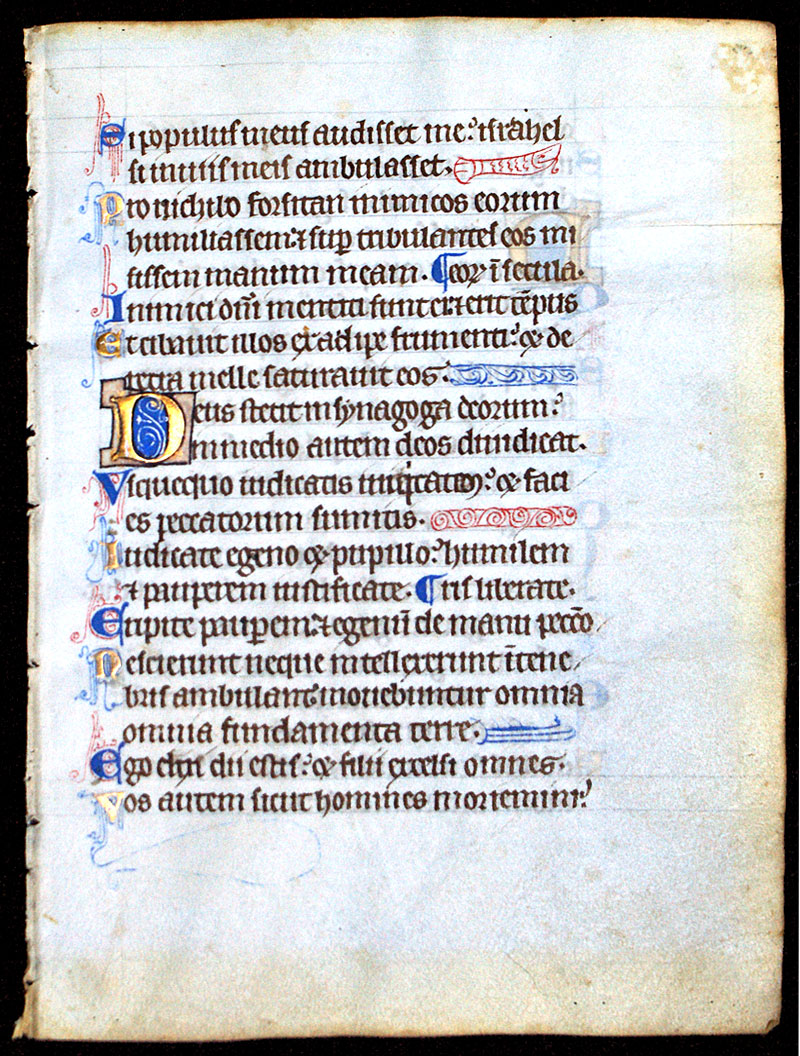 Si populus meus audisset me: israhel
si in uiis meis ambulasset.
Pro nichilo forsitan inimicos eorum
humiliassem: ⁊ suꝑ tribulantes eos mi
sissem manum meam. ¶ eoꝝ ī secula.
Inimici dn̄i mentiti sunt ei: ⁊ erit tēpus
Et cibauit illos ex adipe frumenti: & de
petra melle saturauit eos.
Deus stetit in synagoga deorum:
in medio autem deos diiudicat.
Vsquequo iudicatis iniqitatem: & faci
es peccatorum sumitis.
Iudicate egeno & pupillo: humilem
⁊ pauperem iustificate. ¶ ris liberate.
Eripite pauꝑem: ⁊ egenū de manu peccō
Nescierunt neque intellexerunt ī tene
bris ambulant: mouebuntur omnia
omnia fundamenta terre.
Ego dixi dii estis: & filii excelsi omnes.
Vos autem sicut homines moriemini: